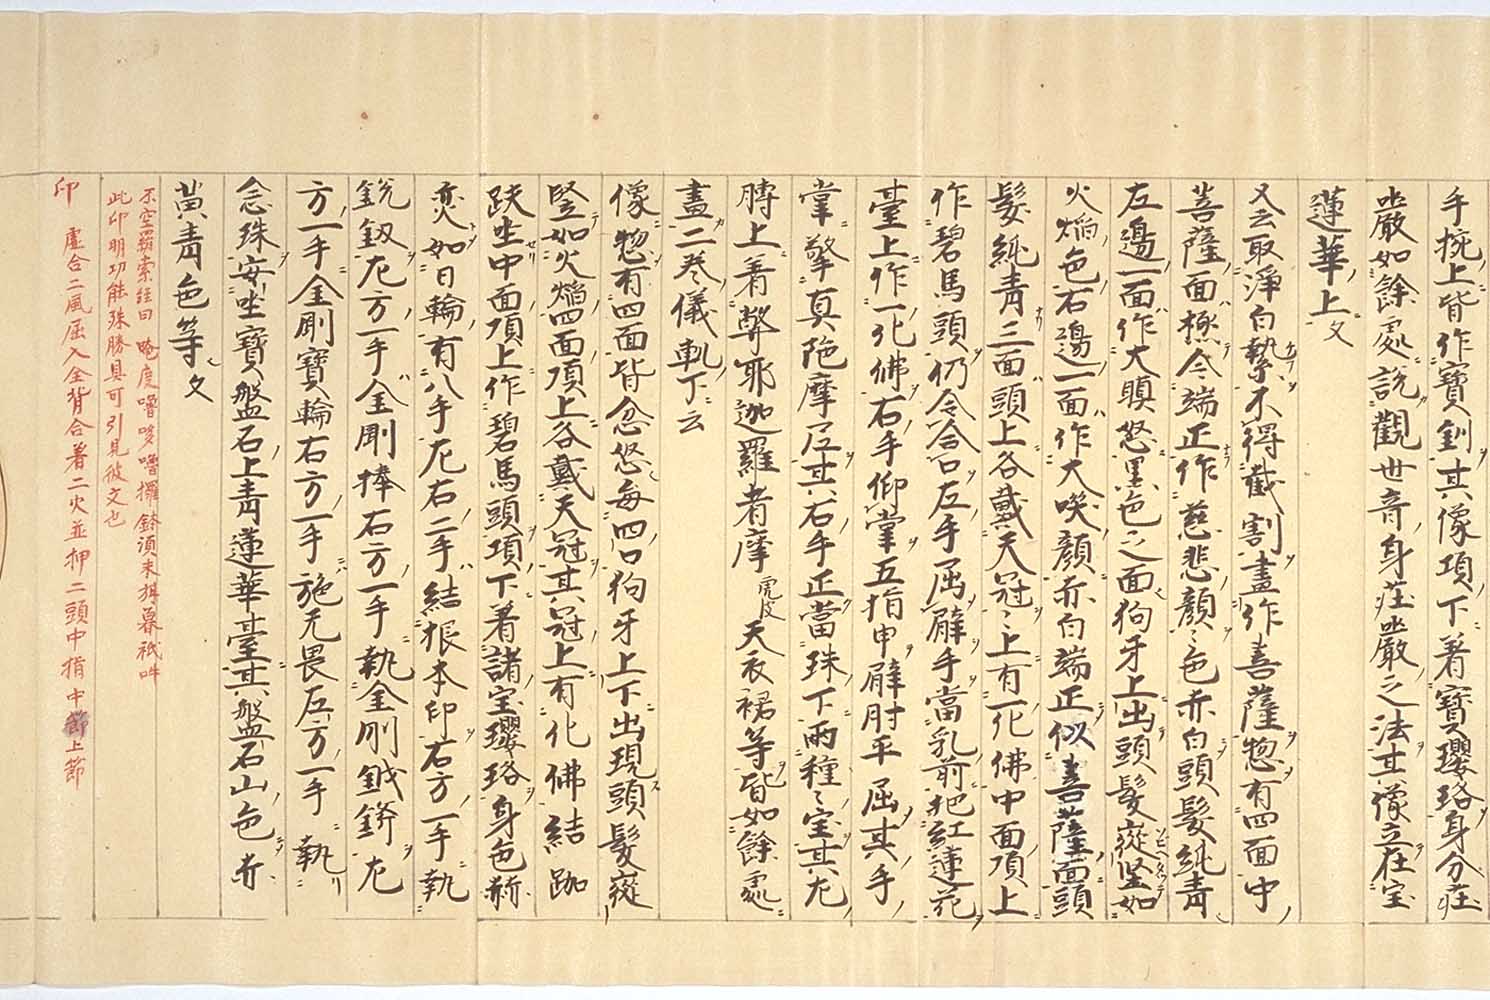 手捥上皆作寶釧其像項下著寶瓔珞身分莊
嚴如餘處說觀世音身莊嚴之法其像立在宝
蓮華上文
又云取淨白㲲不得截割畫作菩薩惣有四面中
菩薩面極令端正作慈悲顏〻色赤白頭髮純青
左邊一面作大瞋怒黑色之面狗牙上出頭髮竪如
火焔色右邊一面作大咲顏赤白端正似菩薩面頭
髮純青三面頭上各戴天冠〻上有一化佛中面頂上
作碧馬頭仍令合口左手屈臂手當乳前把紅蓮花
臺上作一化佛右手仰掌五指申臂肘平屈其手
掌擎真陁摩尼其右手正當珠下雨種〻宝其左
膊上著弊耶迦羅者摩虎皮天衣裙等皆如餘處
畫二卷儀軌下云
像惣有四面皆忿怒每四口狗牙上下出現頭髮
竪如火焔四面頂上各戴天冠其冠上有化佛結跏
趺坐中面頂上作碧馬頭項下著諸宝瓔珞身色赫
奕如日輪有八手左右二手結根本印右方一手執
銳釼左方一手金剛捧右方一手執金剛鉞斧左
方一手金剛寶輪右方一手施无畏左方一手執
念珠安坐寶盤石上青蓮華臺其盤石山色赤
黃青色等文
不空羂索經曰 唵度嚕
此印明功能殊勝具可引見彼文也
印 虛合二風屈入全背合著二火並押二頭中指中節上節